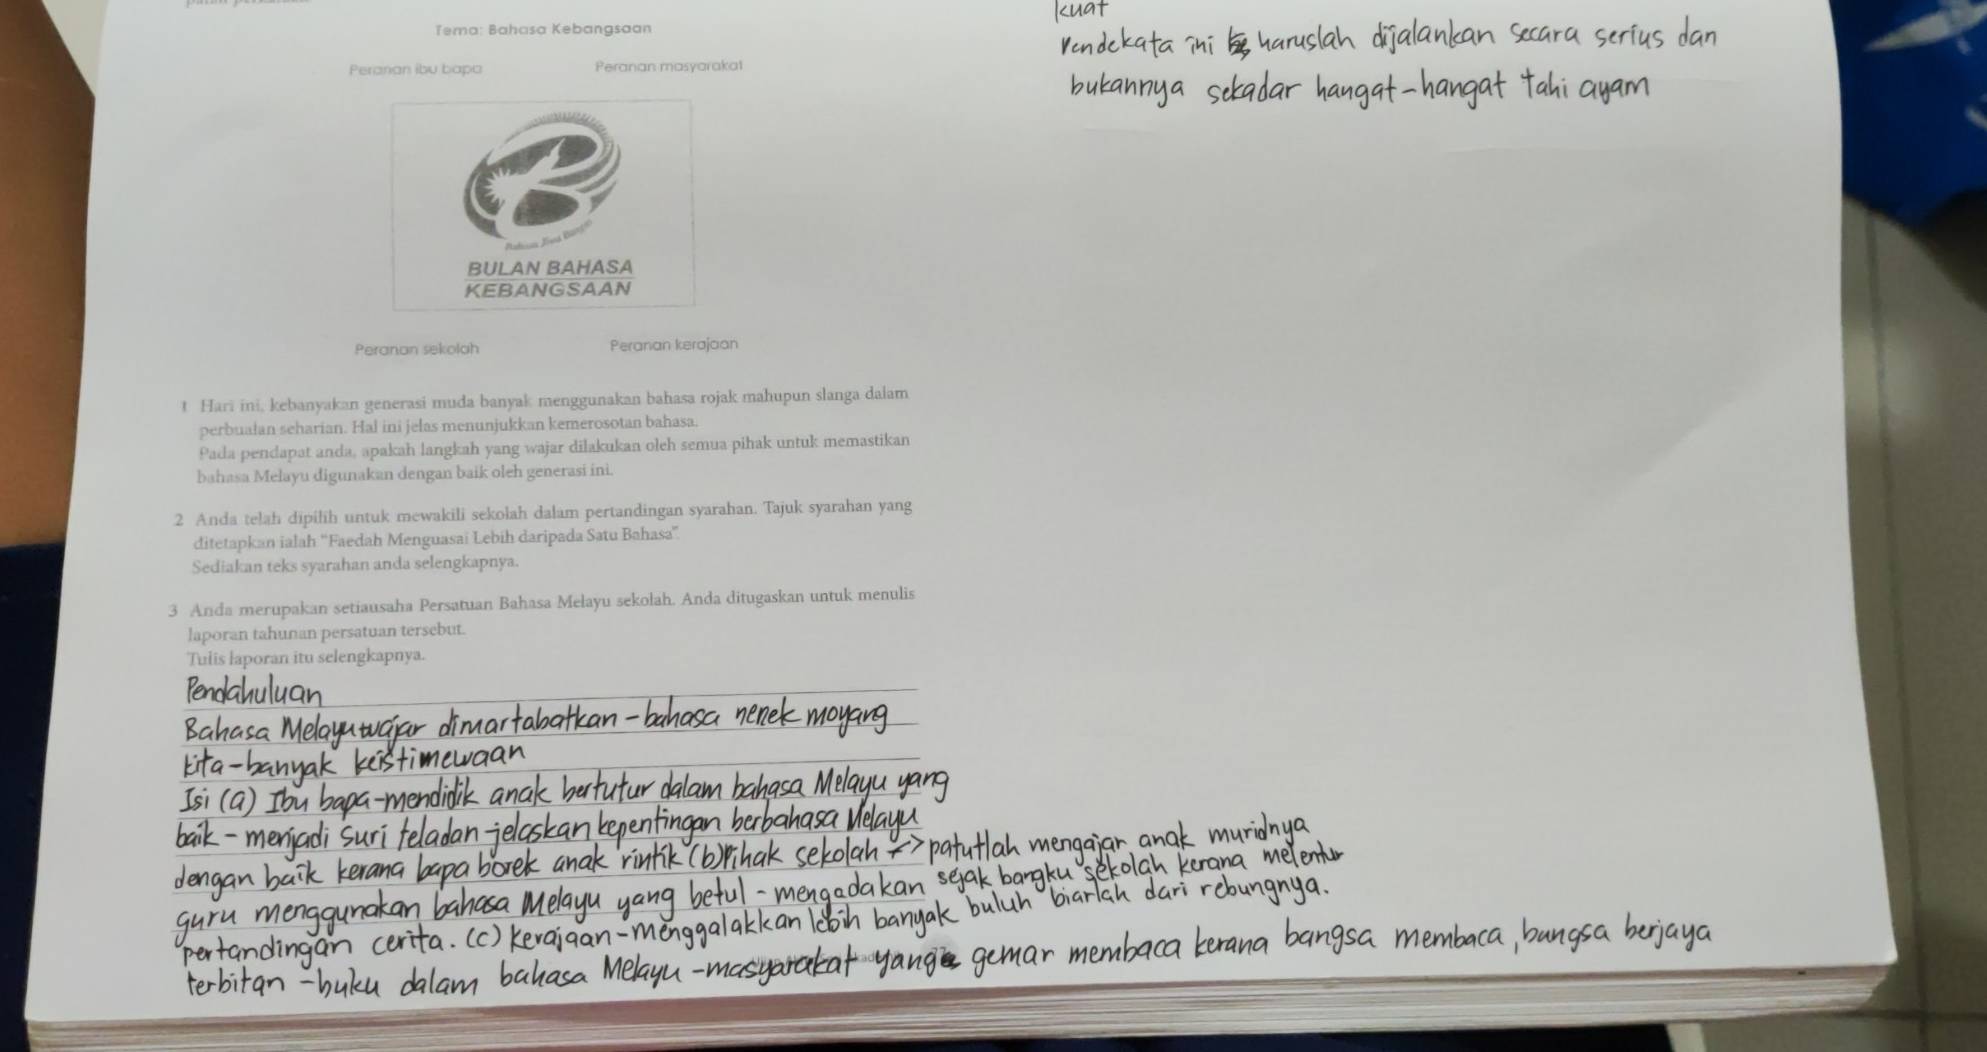 Tema: Bahasa Kebangsaan
Peranan ibu bapa
Peranan masyarakat
Bahasa Jiwa Bangsa
BULAN BAHASA
KEBANGSAAN
Peranan sekolah
Peranan kerajaan
1 Hari ini, kebanyakan generasi muda banyak menggunakan bahasa rojak mahupun slanga dalam
perbualan seharian. Hal ini jelas menunjukkan kemerosotan bahasa.
Pada pendapat anda, apakah langkah yang wajar dilakukan oleh semua pihak untuk memastikan
bahasa Melayu digunakan dengan baik oleh generasi ini.
2 Anda telah dipilih untuk mewakili sekolah dalam pertandingan syarahan. Tajuk syarahan yang
ditetapkan ialah "Faedah Menguasai Lebih daripada Satu Bahasa".
Sediakan teks syarahan anda selengkapnya.
3 Anda merupakan setiausaha Persatuan Bahasa Melayu sekolah. Anda ditugaskan untuk menulis
laporan tahunan persatuan tersebut.
Tulis laporan itu selengkapnya.
Pendahuluan
Bahasa Melayu wajar dimartabatkan - bahasa nenek moyang
kita - banyak keistimewaan
Isi (a) Ibu bapa - mendidik anak bertutur dalam bahasa Melayu yang
baik - menjadi suri teladan - jelaskan kepentingan berbahasa Melayu
dengan baik kerana bapa borek anak rintik (b) Pihak sekolah -> patutlah mengajar anak muridnya
guru menggunakan bahasa Melayu yang betul - mengadakan sejak bangku sekolah kerana melentur
pertandingan cerita. (c) Kerajaan - menggalakkan lebih banyak buluh biarlah dari rebungnya.
terbitan - buku dalam bahasa Melayu - masyarakat yang gemar membaca kerana bangsa membaca, bangsa berjaya
kuat
Pendekata ini haruslah dijalankan secara serius dan
bukannya sekadar hangat-hangat tahi ayam